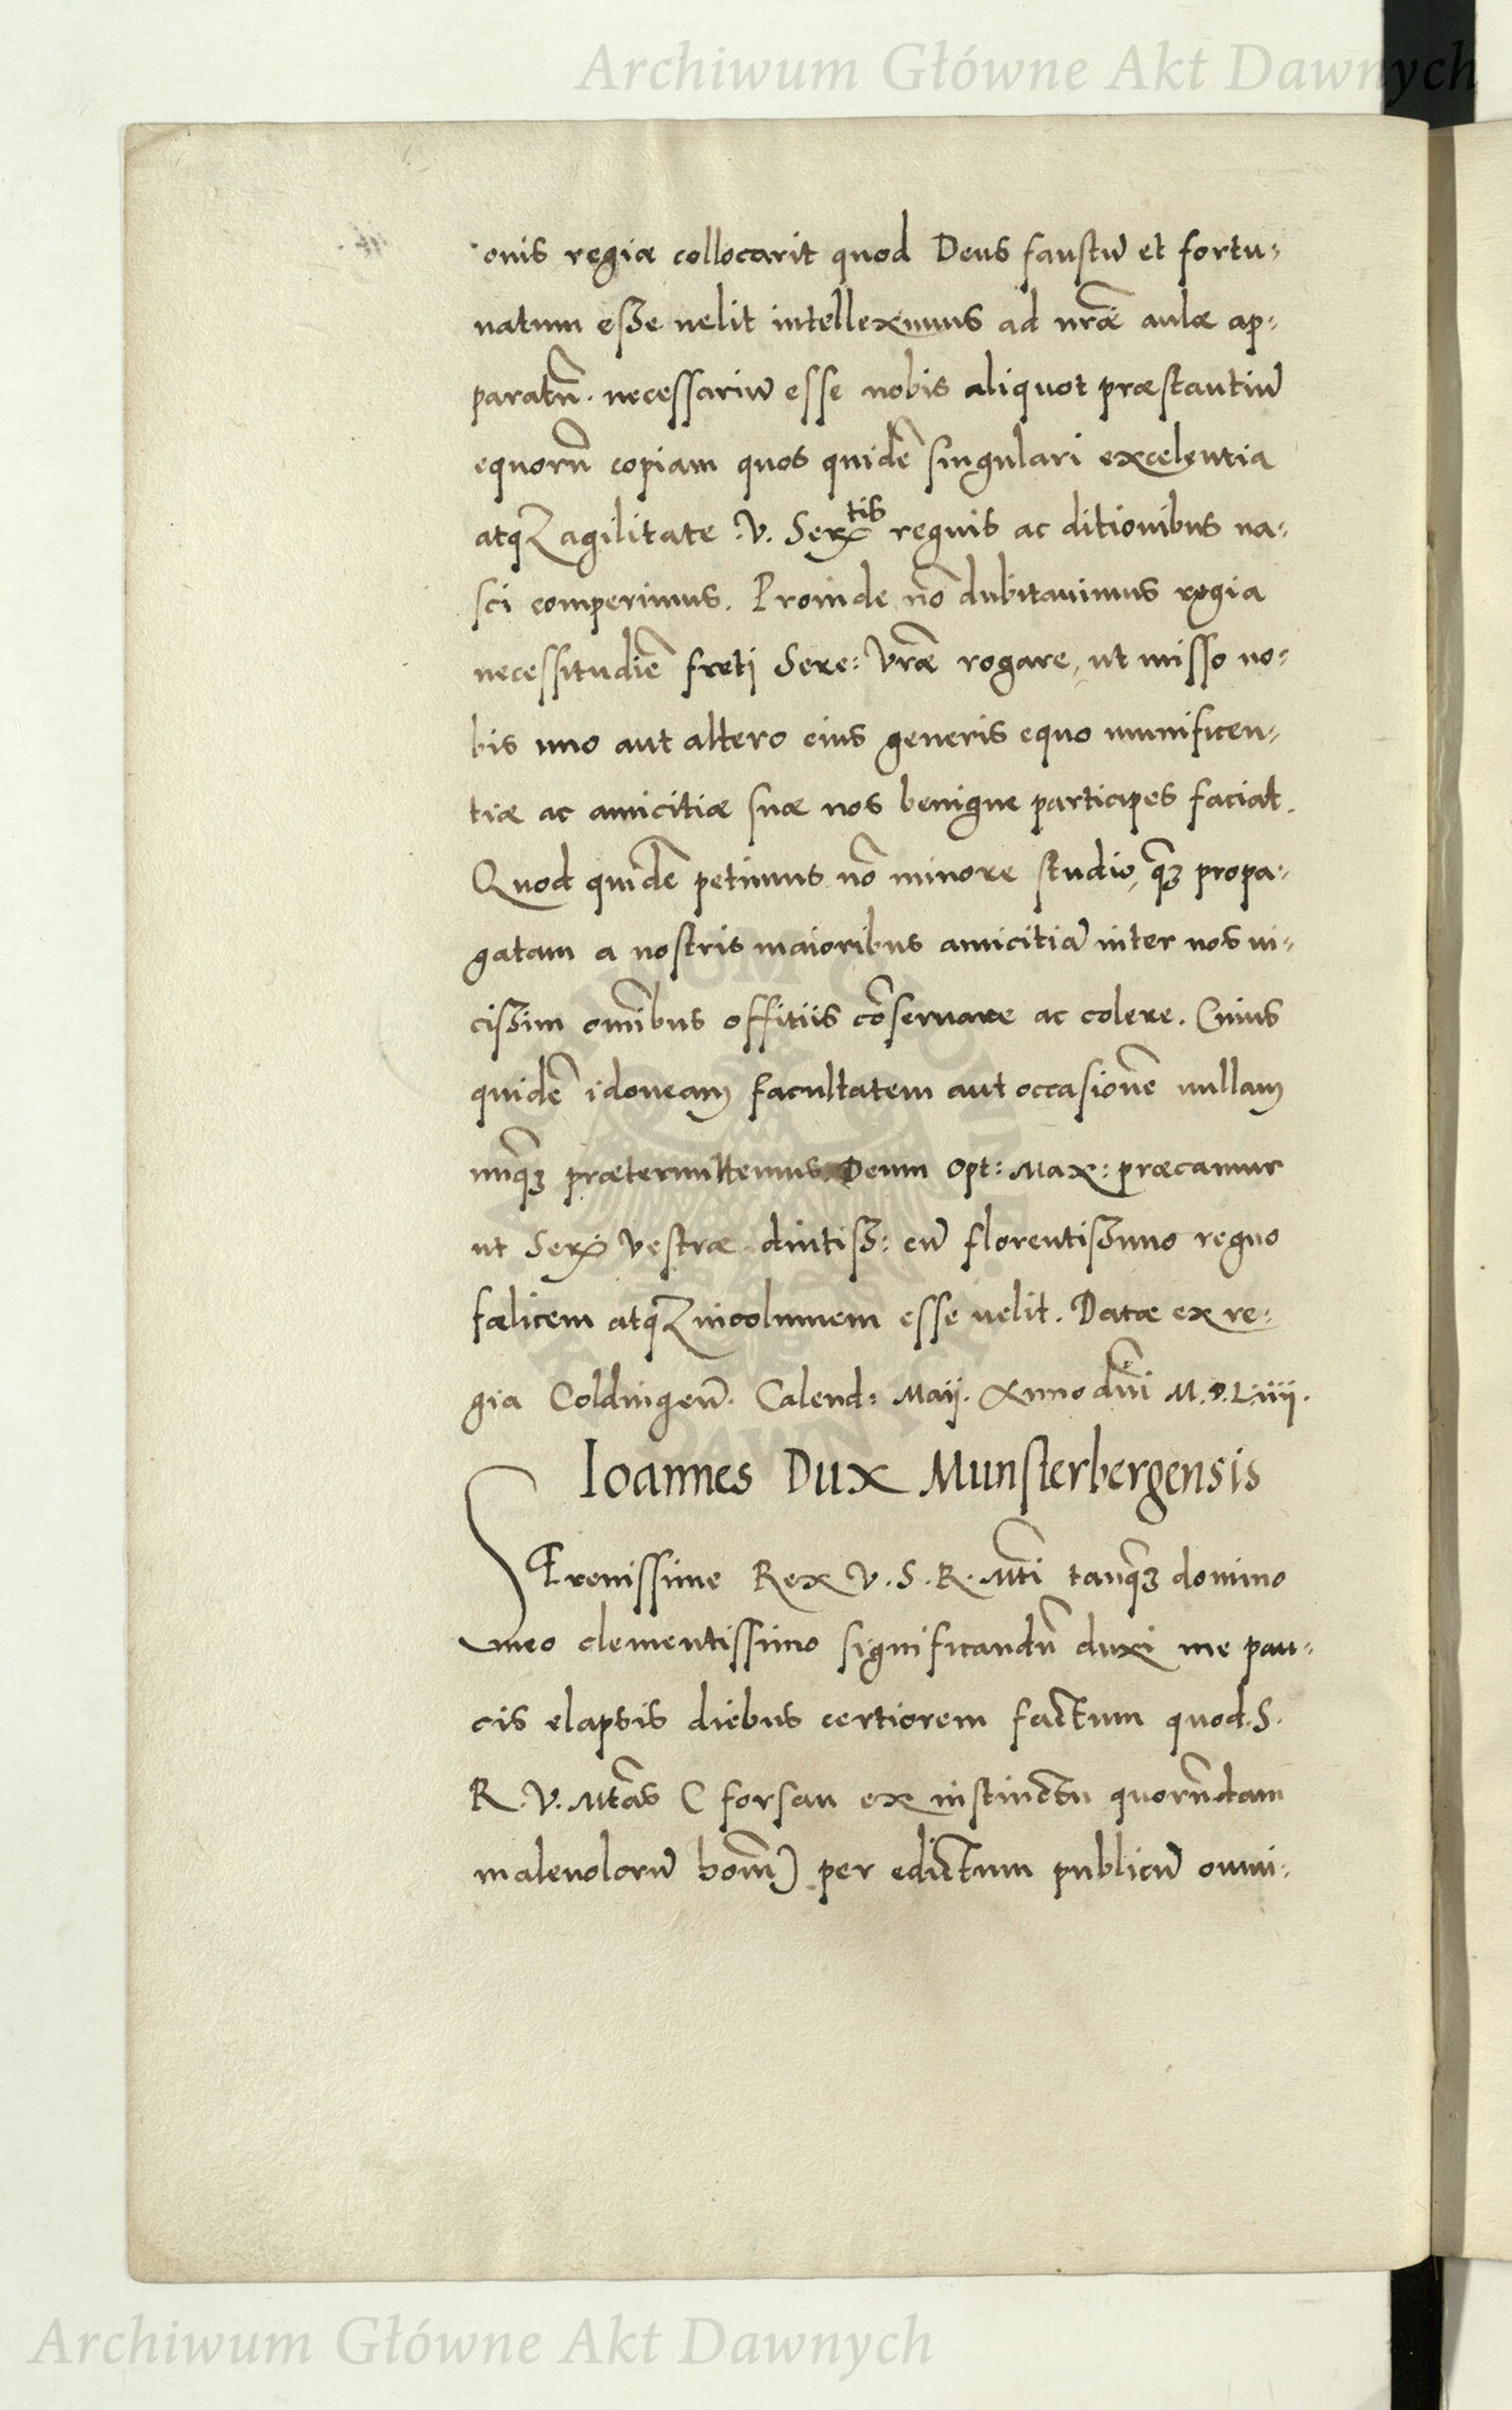 Archiwum Główne Akt Dawnych
onis regiæ collocarit quod Deus faustũ et fortu-
natum esse uelit intelleximus ad nr̃æ aulæ ap-
paratũ. necessariũ esse nobis aliquot præstantiũ
equorũ copiam quos quidẽ singulari excelentia
atqꝫ agilitate .V. Serᵗⁱˢ regnis ac ditionibus na-
sci comperimus. Proinde nõ dubitauimus regia
necessitudiẽ freti Sere: Vr̃æ rogare, ut misso no-
bis uno aut altero eius generis equo munificen-
tiæ ac amicitiæ suæ nos benigne participes faciat.
Quod quidẽ petimus nõ minore studio, q̃ꝫ propa-
gatam a nostris maioribus amicitiã inter nos ui-
cissim om̃ibus offitiis cõseruare ac colere. Cuius
quidẽ idoneam facultatem aut occasionẽ nullam
unq̃ꝫ prætermittemus. Deum Opt: Max: præcamur
ut Ser: Vestræ diutiss: cũ florentissimo regno
fælicem atqꝫ incolumem esse uelit. Datæ ex re-
gia Coldingeñ. Calend: Maij. Anno dñi M.D.Liiij.
Ioannes Dux Munsterbergensis
SErenissime Rex V.S.R. Mti tanq̃ꝫ domino
meo clementissimo significandũ duxi me pau-
cis elapsis diebus certiorem factum quod .S.
R.V. Mtãs ( forsan ex instinctu quorũdam
maleuolorũ hom̃) per edictum publicũ omni-
ARCHIWUM GŁÓWNE
AKT DAWNYCH
Archiwum Główne Akt Dawnych